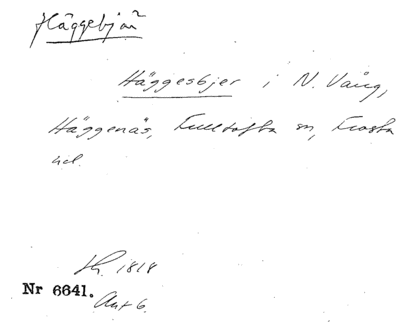 Häggebjär
Häggesbjer i N. Vång,
Häggenäs, Fulltofta sn, Frosta
hd.
Sk. 1818
Nr 6641.
Akt 6.